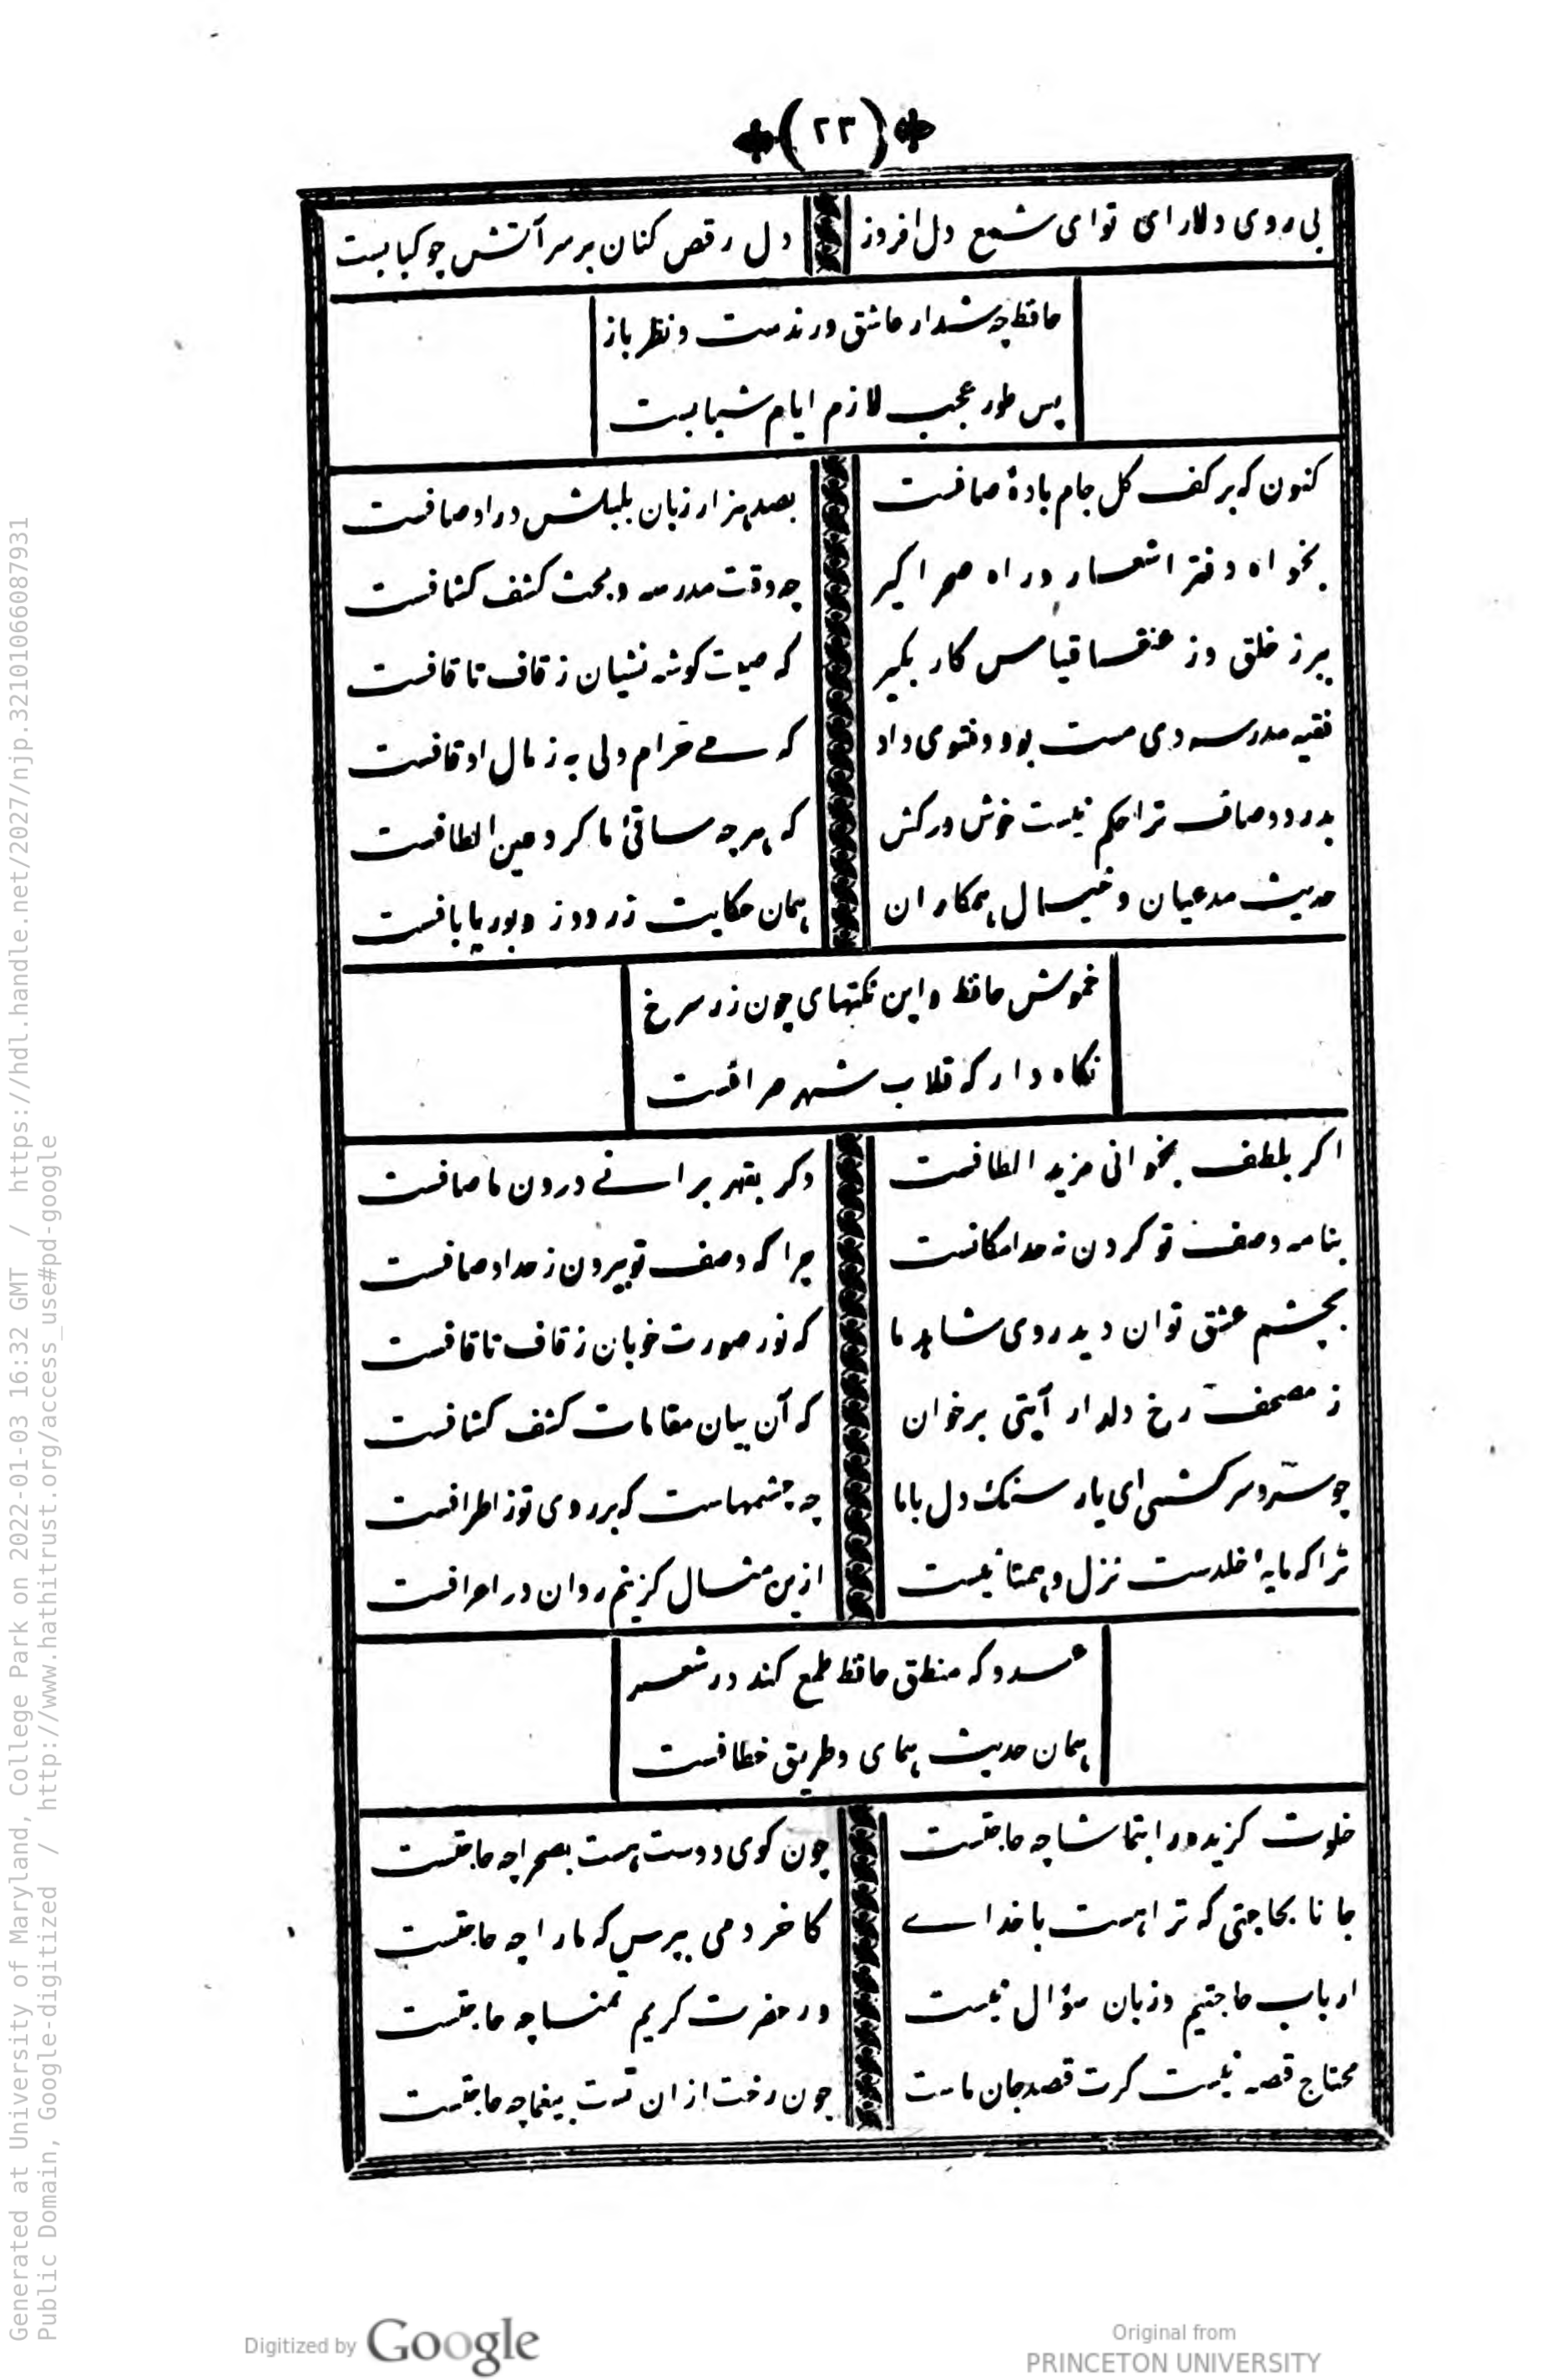 (٢٣)
بی روی دلارای توای شمع دل افروز
دل رقص کنان بر سر آتش چو کبابیست
حافظ چه شد ار عاشق ورندست ونظر باز
پس طور عجب لازم ایام شبابیست
کنون که بر کف کل جام بادهٔ صافست
بصد هزار زبان بلبلش در اوصافست
بخواه دفتر اشعار وراه صحرا کیر
چه وقت مدرسه وبحث کشف کشافست
ببر ز خلق وز عنقا قیاس کار بکیر
که صیت کوشه نشیان ز قاف تا قافست
فقیه مدرسه دی مست بود وفتوی داد
که می حرام ولی به ز مال اوقافست
بدرد وصاف ترا حکم نیست خوش درکش
که هر چه ساقیٔ ما کرد عین الطافست
حدیث مدعیان وخیال همکاران
همان حکایت زردوز وبوریا بافست
خموش حافظ واین نکتهای چون زر سرخ
نکاه دار که قلاب شهر صرافست
اکر بلطف بخوانی مزید الطافست
وکر بقهر برانے درون ما صافست
بنامه وصف تو کردن نه حد امکانست
چرا که وصف تو بیرون ز حد اوصافست
بچشم عشق توان دید روی شاهد ما
که نور صورت خوبان ز قاف تا قافست
ز مصحف رخ دلدار آیتی برخوان
که آن بیان مقامات کشف کشافست
چو سرو سرکشی ای یار سنک دل باما
چه چشمهاست که بر روی تو ز اطرافست
ترا که مایهٔ خلدست نزل وهمتا نیست
ازین مثال کزیتم روان در اعرافست
عدو که منطق حافظ طمع کند در شعر
همان حدیث همای وطریق خطافست
خلوت کزیده را بتماشا چه حاجتست
چون کوی دوست هست بصحرا چه حاجتست
جانا بحاجتی که ترا هست با خداے
کاخر دمی بپرس که مارا چه حاجتست
ارباب حاجتیم وزبان سؤال نیست
در حضرت کریم تمنا چه حاجتست
محتاج قصه نیست کرت قصد جان ماست
چون رخت از ان تست بیغما چه حاجتست
Generated at University of Maryland, College Park on 2022-01-03 16:32 GMT / https://hdl.handle.net/2027/njp.32101066087931
Public Domain, Google-digitized / http://www.hathitrust.org/access_use#pd-google
Digitized by Google
Original from
PRINCETON UNIVERSITY